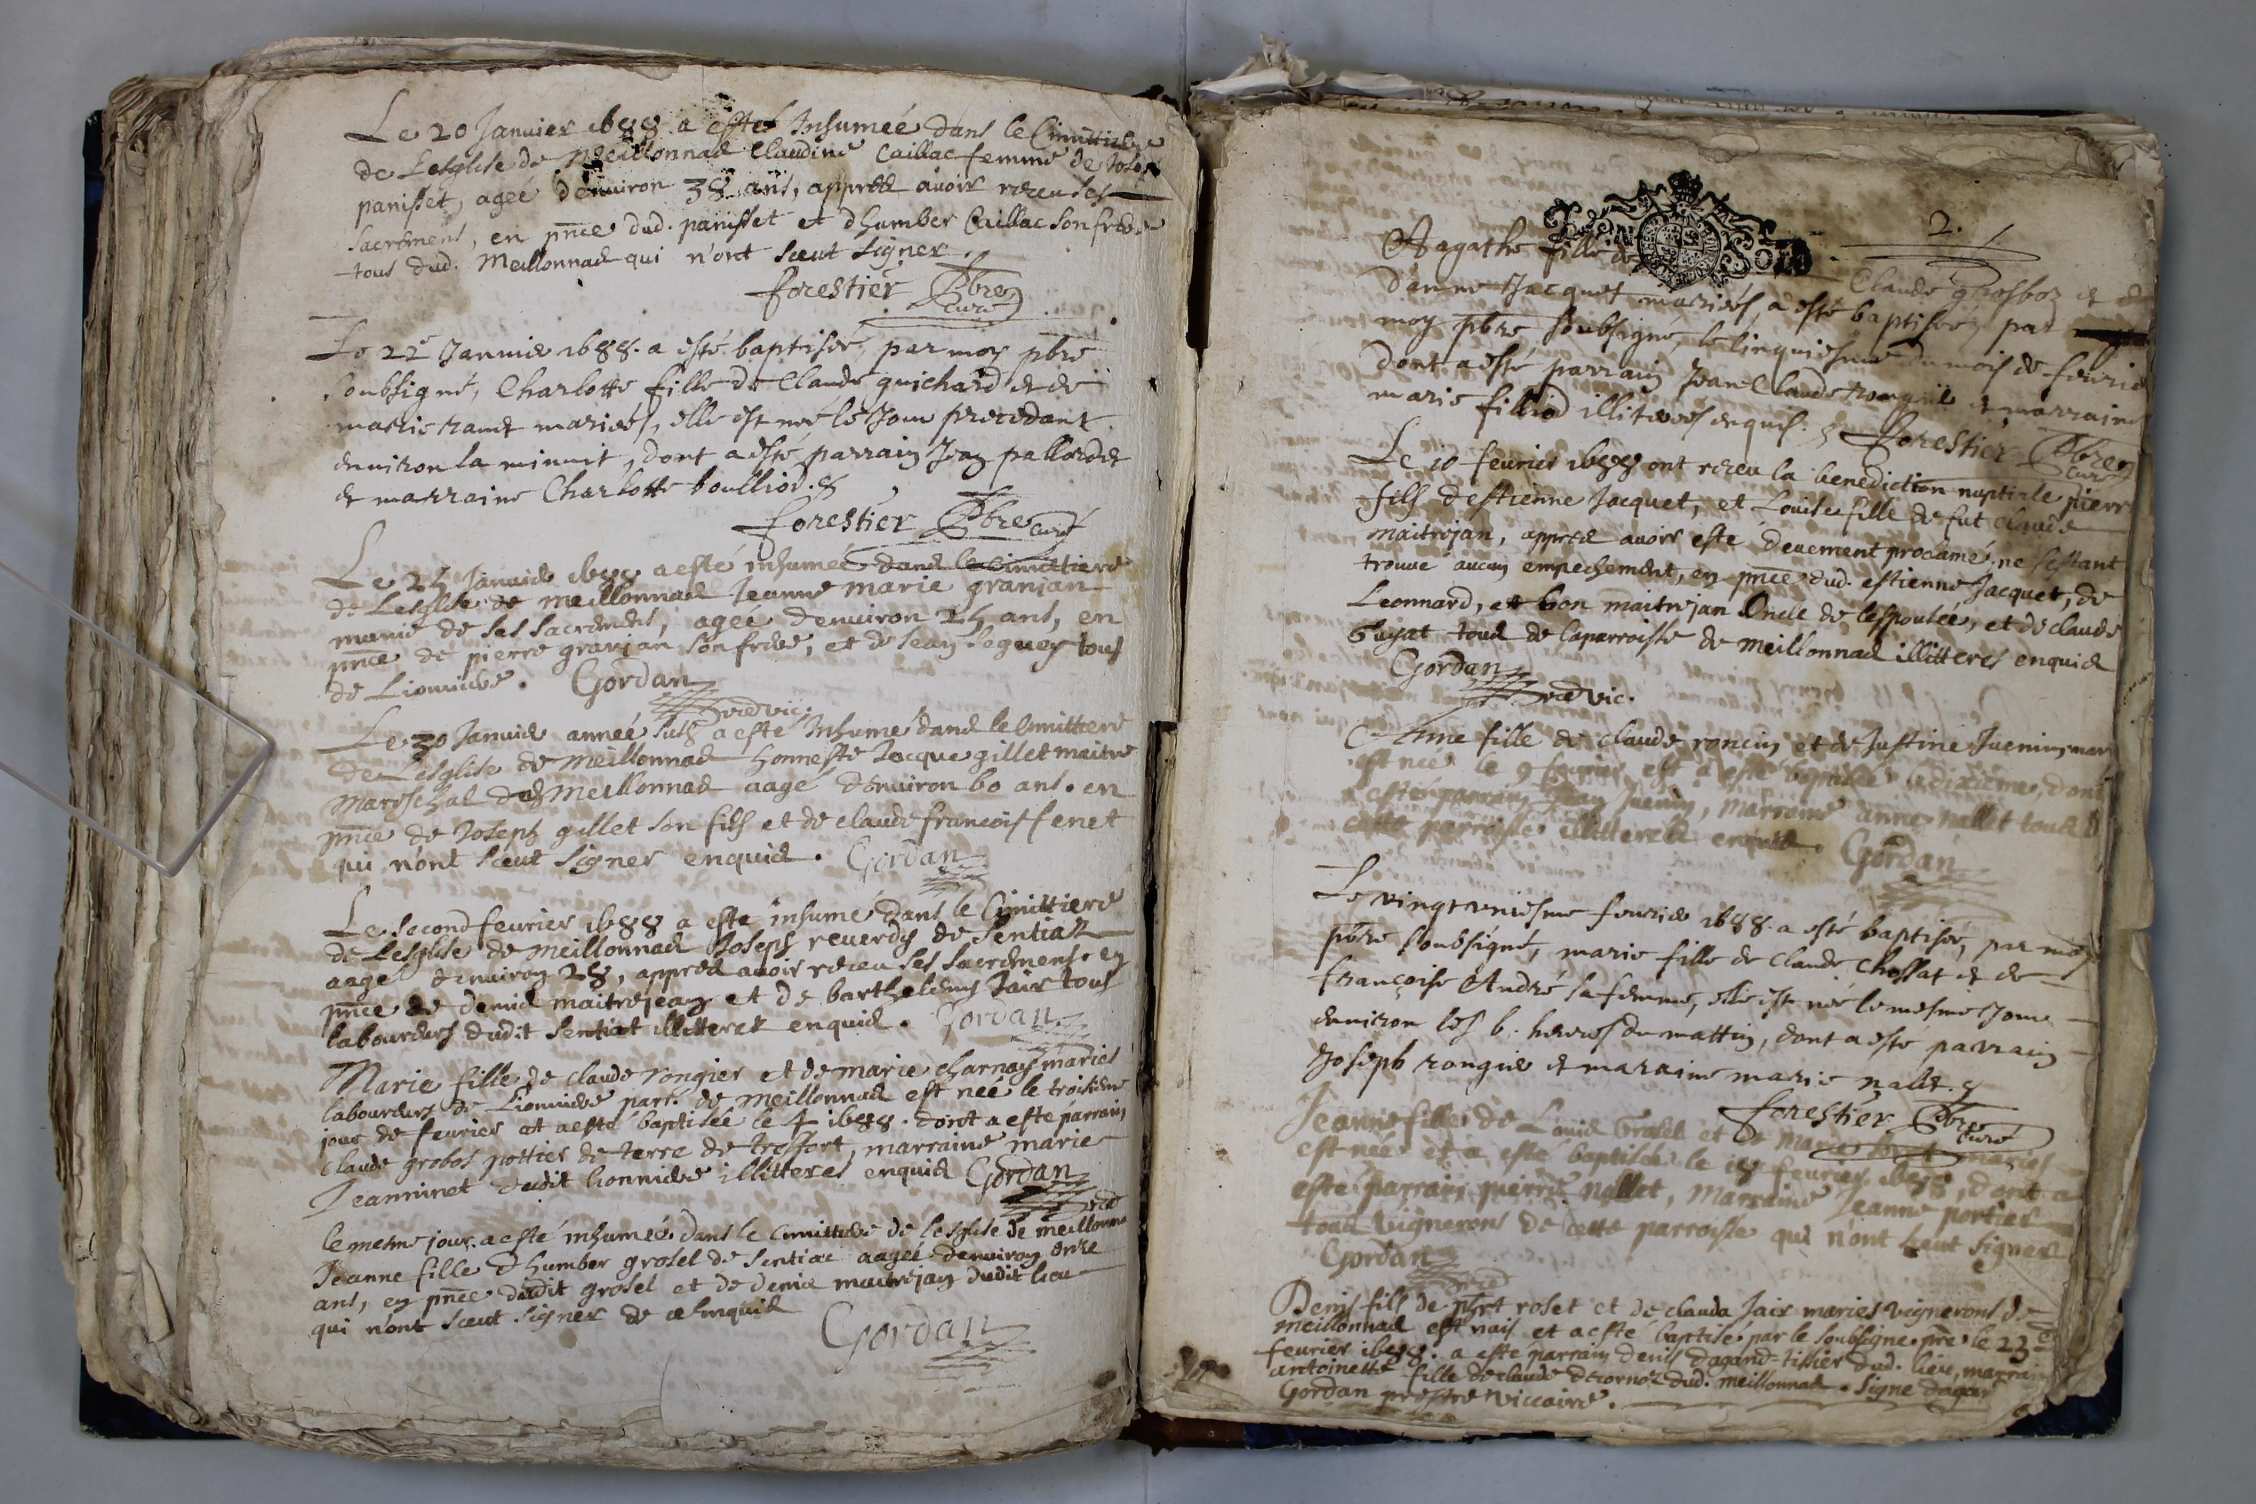 Le 20 Janvier 1688 a estes Inhumeé dans le Cimittiere
de Lesglise de Meillonnas Claudine Caillac femme de Josep
panisset, ageé denviron 38 ans, appres avoir receu ses
sacrement, en pnce dud. panisset et dhumber Caillac son frere
tous dud. Meillonnas qui n'ont sceut signer.
forestier Pbre
Curé
Le 22e Janvier 1688. a esté baptisée, par moy pbre
soubsigné, Charlotte fille de Claude guichard et de
mariés, elle est neé le Jour precedant
environ la minuit, dont a esté parrain Jean
et marraine Charlotte boulliod.
forestier Pbre curé
Le 25 Janvier 1688 a esté inhumeé dans le Cimittiere
de Lesglise de meillonnas Jeanne marie granjan
munie de ses sacremens, ageé denviron 25 ans, en
pnce de pierre granjan son frere, et de Jean tous
de Lionniere. Gordan
vic.
Le 30 Janvier année susd a esté Inhumé dans le Cimittiere
de Lesglise de meillonnas honneste Jacque gillet maitre
mareschal de Meillonnas aagé denviron 60 ans. en
pnce de Joseph gillet son fils et de claude francois fenet
qui n'ont sceut signer enquis. Gordan
Le second fevrier 1688 a esté inhumé dans le Cimittiere
de Lesglise de meillonnas Joseph reverdy de Sentiat
aagé denviron 28, appres avoir receu ses sacremens. en
pnce de denis maitrejean et de barthelemy Jair tous
laboureurs dudit Sentiat illitteres enquis. Gordan
Marie fille de claude rongier et de marie charnay mariés
laboureurs de Lionniere parr. de meillonnas est neé le troisieme
jour de fevrier et a esté baptiseé le 4 1688. dont a esté parrain
claude grobos pottier de terre de treffort, marraine marie
Jeanninet dudit lionniere illitteres enquis Gordan
le mesme jour a esté inhumeé dans le Cimittiere de lesglise de meillonna
Jeanne fille dhumber grosel de Sentiac aageé denviron onze
ans, en pnce dudit grosel et de denis maitrejan dudit lieu
qui n'ont sceut signer de ce enquis
Gordan
2.
Agathe fille de Claude grosboz et
d'anne Jacquet mariés, a esté baptiseé, par
moy pbre soubsigné, le cinquiesme du mois de fevrier
dont a esté parrain Jean Claude et marraine
marie filliod illiteres enquis. Forestier Pbre
Curé
Le 10 fevrier 1688 ont receu la benediction nuptiale pierre
fils destienne Jacquet, et Louise fille de fut claude
maitrejan, appres avoir esté deuement proclamé, ne sestant
trouvé aucun empechement, en pnce dud. estienne Jacquet, de
Leonnard, et bon maitrejan Oncle de lespouseé, et de claude
Guyat tous de la parroisse de meillonnas illitteres enquis
Gordan
vic.
Anne fille de claude roncin et de Justine Juenin mar
est neé le 9 fevrier et a esté baptiseé le dixieme, dont
a esté parrain Jean Juenin, marraine anne nallet tous d
cette parroisse illitteres enquis. Gordan
Le vingt uniesme fevrier 1688. a esté baptisée, par moy
pbre soubsigné, marie fille de Claude Chossat et de
françoise André sa femme, elle est neé le mesme Jour
environ les 6. heures du mattin, dont a esté parrain
Joseph rongier et maraine marie nalet.
forestier Pbre
Curé
Jeanne fille de Louis Grosel et de marie mariés
est neé et a esté baptiseé le 18 fevrier 1688, dont a
esté parrain pierre nallet, marraine Jeanne portier
tous vignerons de cette parroisse qui n'ont sceut signer
Gordan
Denis fils de phrt roset et de clauda Jair mariés vignerons de
meillonnas est nais et a esté baptisé par le soubsigné pre le 23e
fevrier 1688. a esté parrain denis dagand tissier dud. lieu, marraine
antoinette fille de claude decornoz dud. meillonnas. signé dagan
Gordan prestre viccaire.